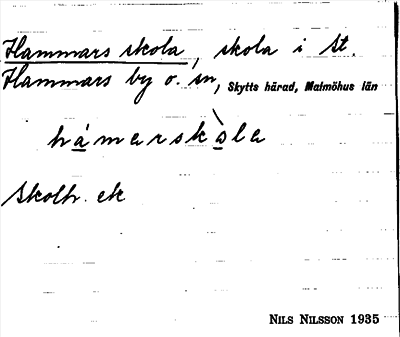 Hammars skola, skola i St.
Hammars by o. sn, Skytts härad, Malmöhus län
hámerskòla
Skolb. ek
NILS NILSSON 1935